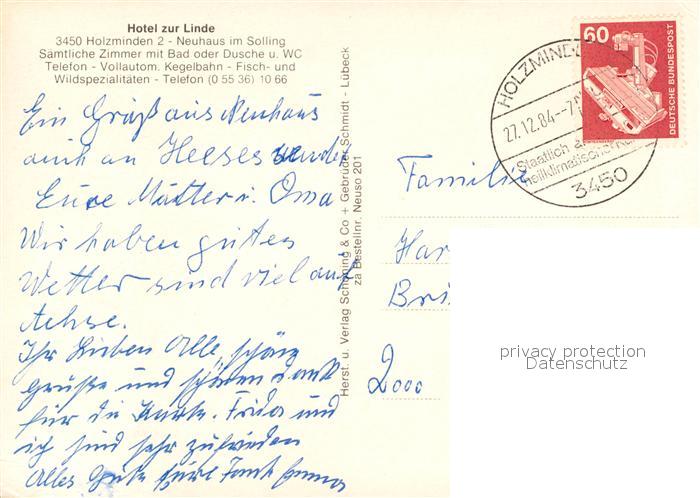 Hotel zur Linde
3450 Holzminden 2 - Neuhaus im Solling
Sämtliche Zimmer mit Bad oder Dusche u. WC
Telefon - Vollautom. Kegelbahn - Fisch- und
Wildspezialitäten - Telefon (0 55 36) 10 66
Ein Grüß aus Neuhaus
auch an Heeses
Eure Mutter u. Oma
Wir haben gutes
Wetter sind viel auf
Achse.
Ihr Lieben Alle, schöne
Grüße und schönen Dank
für die Karte. Frida und
ich sind sehr zufrieden
Alles Gute Eure Tante Emma
Herst. u. Verlag Schöning & Co + Gebrüder Schmidt - Lübeck
za Bestellnr. Neuso 201
HOLZMIND
27.12.84-7
Staatlich a
heilklimatischer K
3450
60
DEUTSCHE BUNDESPOST
Familie
Har
Bri
2000
privacy protection
Datenschutz